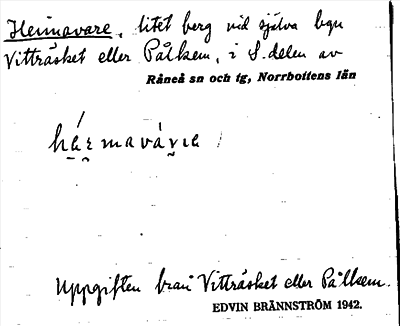 Heimavare, litet berg vid själva byn
Vitträsket eller Pålkem, i S. delen av
Råneå sn och tg, Norrbottens län
Uppgiften från Vitträsket eller Pålkem.
EDVIN BRÄNNSTRÖM 1942.